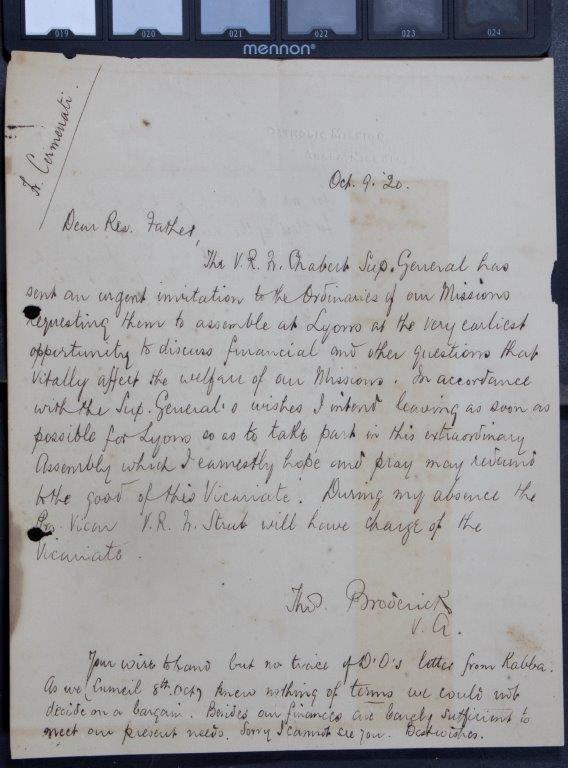 019 020 021 022 023 024
mennon®
Fr. Cermenati.
CATHOLIC MISSION
Oct. 9. '20.
Dear Rev. Father,
The V. R. Fr. Chabert Sup. General has
sent an urgent invitation to the Ordinaries of our Missions
requesting them to assemble at Lyons at the very earliest
opportunity to discuss financial and other questions that
vitally affect the welfare of our Missions. In accordance
with the Sup. General's wishes I intend leaving as soon as
possible for Lyons so as to take part in this extraordinary
Assembly which I earnestly hope and pray may redound
to the good of this Vicariate. During my absence the
Pro. Vicar V. R. Fr. Strub will have charge of the
Vicariate.
Thos. Broderick
V. A.
Your wire to hand but no trace of D.O's letter from Kabba.
As we (Council 8th. Oct) knew nothing of terms we could not
decide on a bargain. Besides our finances are barely sufficient to
meet our present needs. Sorry I cannot see you. Best wishes.